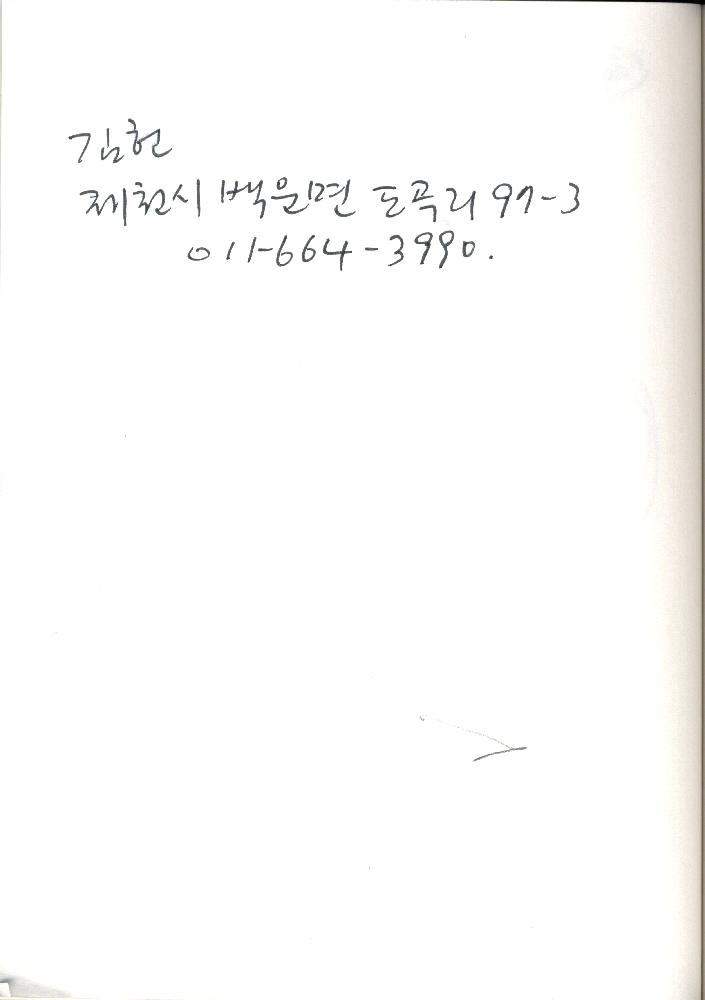 김헌
제천시 백운면 도곡리 97-3
011-664-3990.